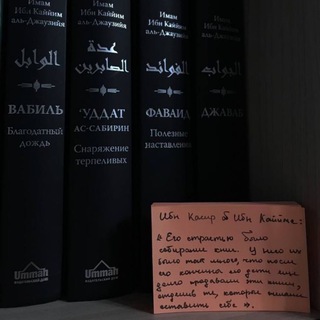 Имам
Ибн Каййим
аль-Джаузийя
الوابل
ВАБИЛЬ
Благодатный
дождь
Ummah
ИЗДАТЕЛЬСКИЙ ДОМ
Имам
Ибн Каййим
аль-Джаузийя
عدة
الصابرين
‘УДДАТ
АС-САБИРИН
Снаряжение
терпеливых
Ummah
ИЗДАТЕЛЬСКИЙ ДОМ
Имам
Ибн Каййим
аль-Джаузийя
الفوائد
ФАВАИД
Полезные
наставления
Имам
Ибн Каййим
аль-Джаузийя
الجواب
ДЖАВАБ
Ибн Касир об Ибн Каййиме:
« Его страстью было
собирание книг. У него их
было так много, что после
его кончины его дети еще
долго продавали эти книги,
отделив те, которые желали
оставить себе ».